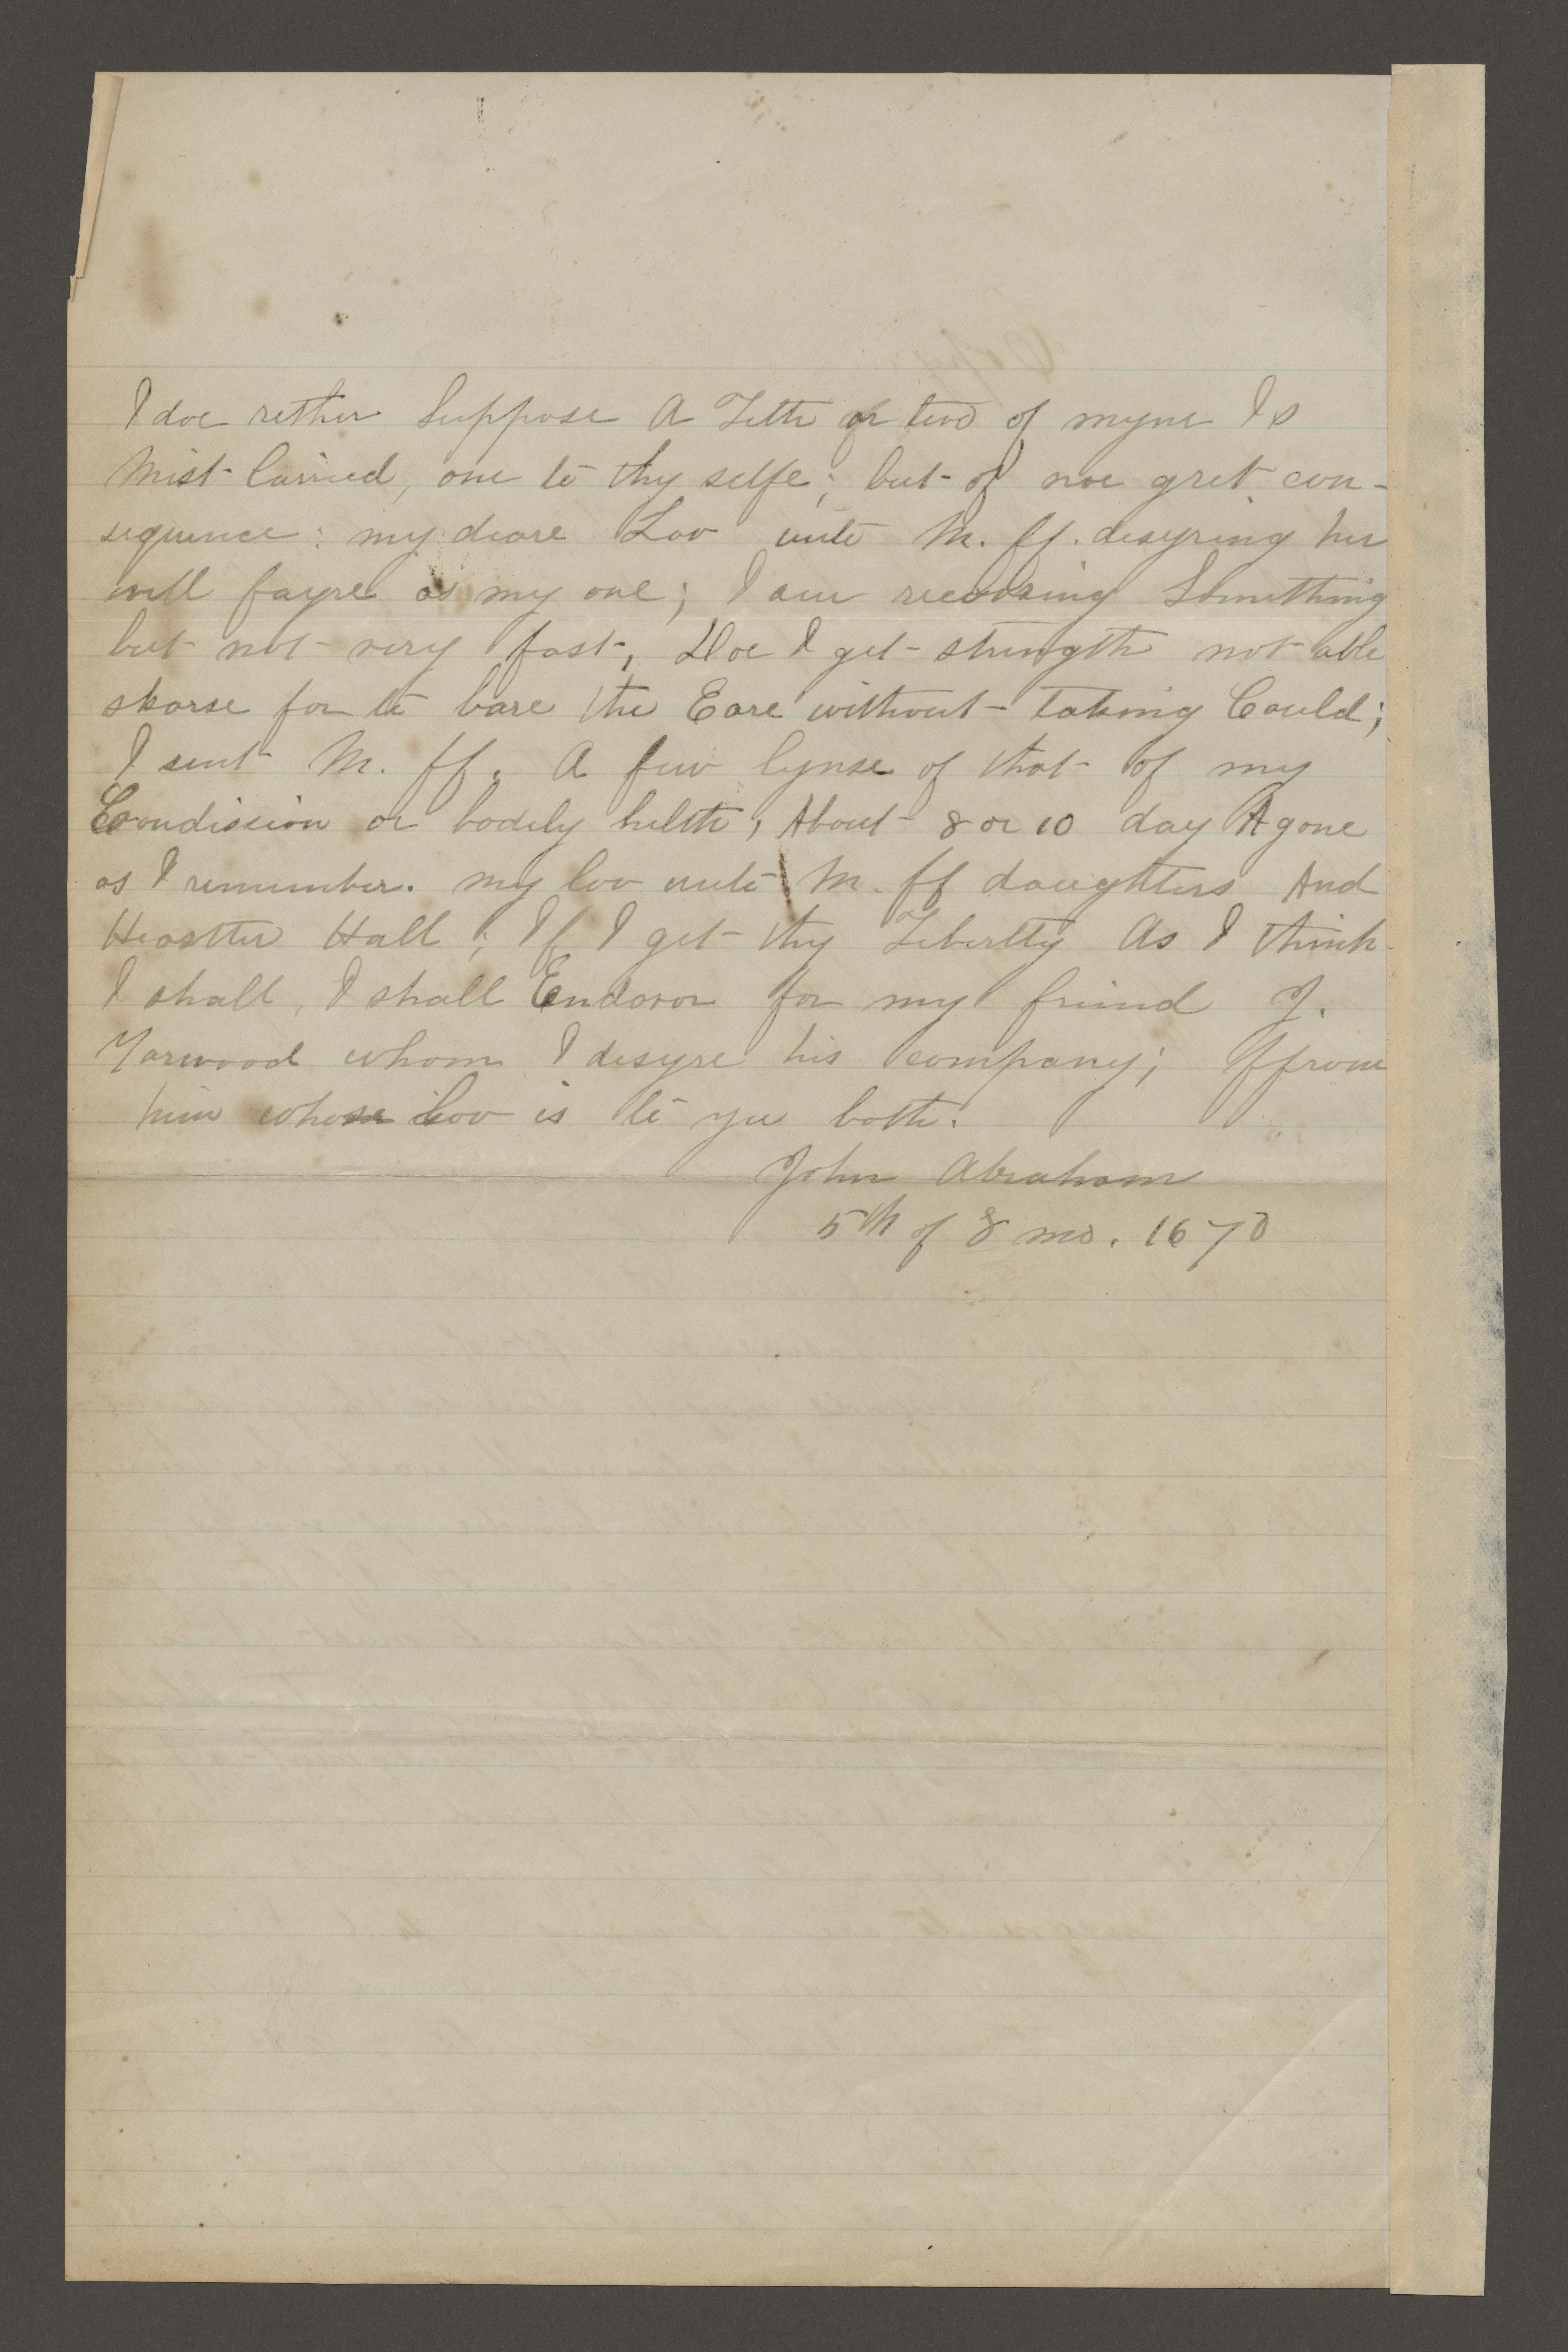 I doe rether Suppose A Lettr or two of myne Is
Mist-Carried, one to thy selfe; but of noe gret con-
sequence: my deare Lov unto M. ff. desyring her
well fayre as my one; I am recovring Something
but not very fast, Doe I get strength not able
skarse for to bare the Eare without taking Could;
I sent M. ff. A few lynse of that of my
Condission or bodily helth, About 8 or 10 day Agone
as I remember. my lov unto M. ff daughters And
Heastter Hall; If I get thy Lebertty As I think
I shall, I shall Endovor for my friend J.
Yarwood whom I desyre his company; ffrom
him whose lov is to you both.
John Abraham
5th of 8 mo. 1670